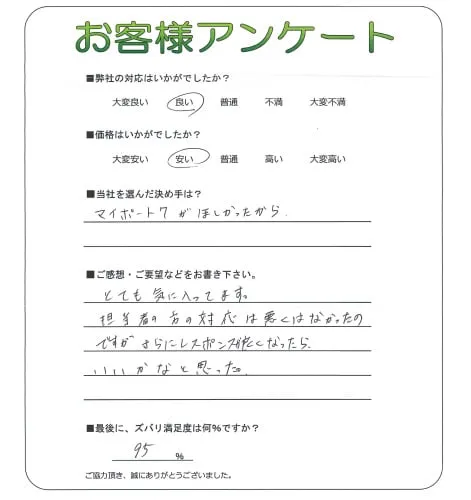 お客様アンケート
■弊社の対応はいかがでしたか?
大変良い 良い 普通 不満 大変不満
■価格はいかがでしたか?
大変安い 安い 普通 高い 大変高い
■当社を選んだ決め手は?
マイポート7がほしかったから.
■ご感想・ご要望などをお書き下さい。
とても気に入ってます。
担当者の方の対応は悪くはなかったの
ですがさらにレスポンスが
くなったら、
いいかなと思った。
■最後に、ズバリ満足度は何%ですか?
95 %
ご協力頂き、誠にありがとうございました。